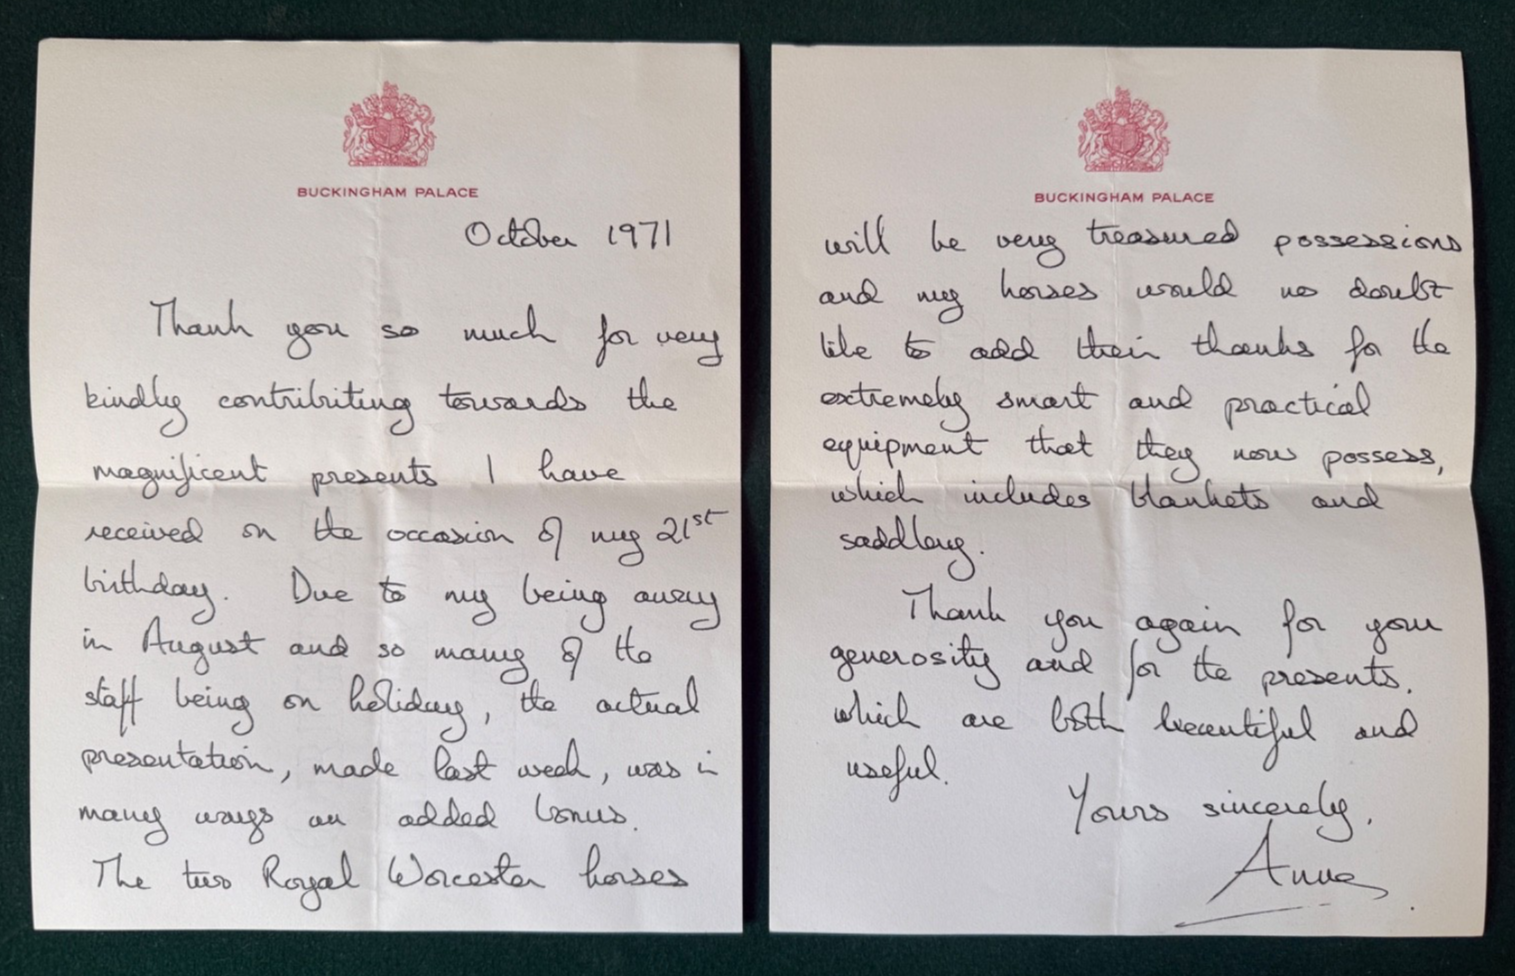 BUCKINGHAM PALACE
October 1971
Thank you so much for very
kindly contributing towards the
magnificent presents I have
received on the occasion of my 21st
birthday. Due to my being away
in August and so many of the
staff being on holiday, the actual
presentation, made last week, was in
many ways an added bonus.
The two Royal Worcester horses
BUCKINGHAM PALACE
will be very treasured possessions
and my horses would no doubt
like to add their thanks for the
extremely smart and practical
equipment that they now possess,
which includes blankets and
saddlery.
Thank you again for your
generosity and for the presents,
which are both beautiful and
useful.
Yours sincerely,
Anne